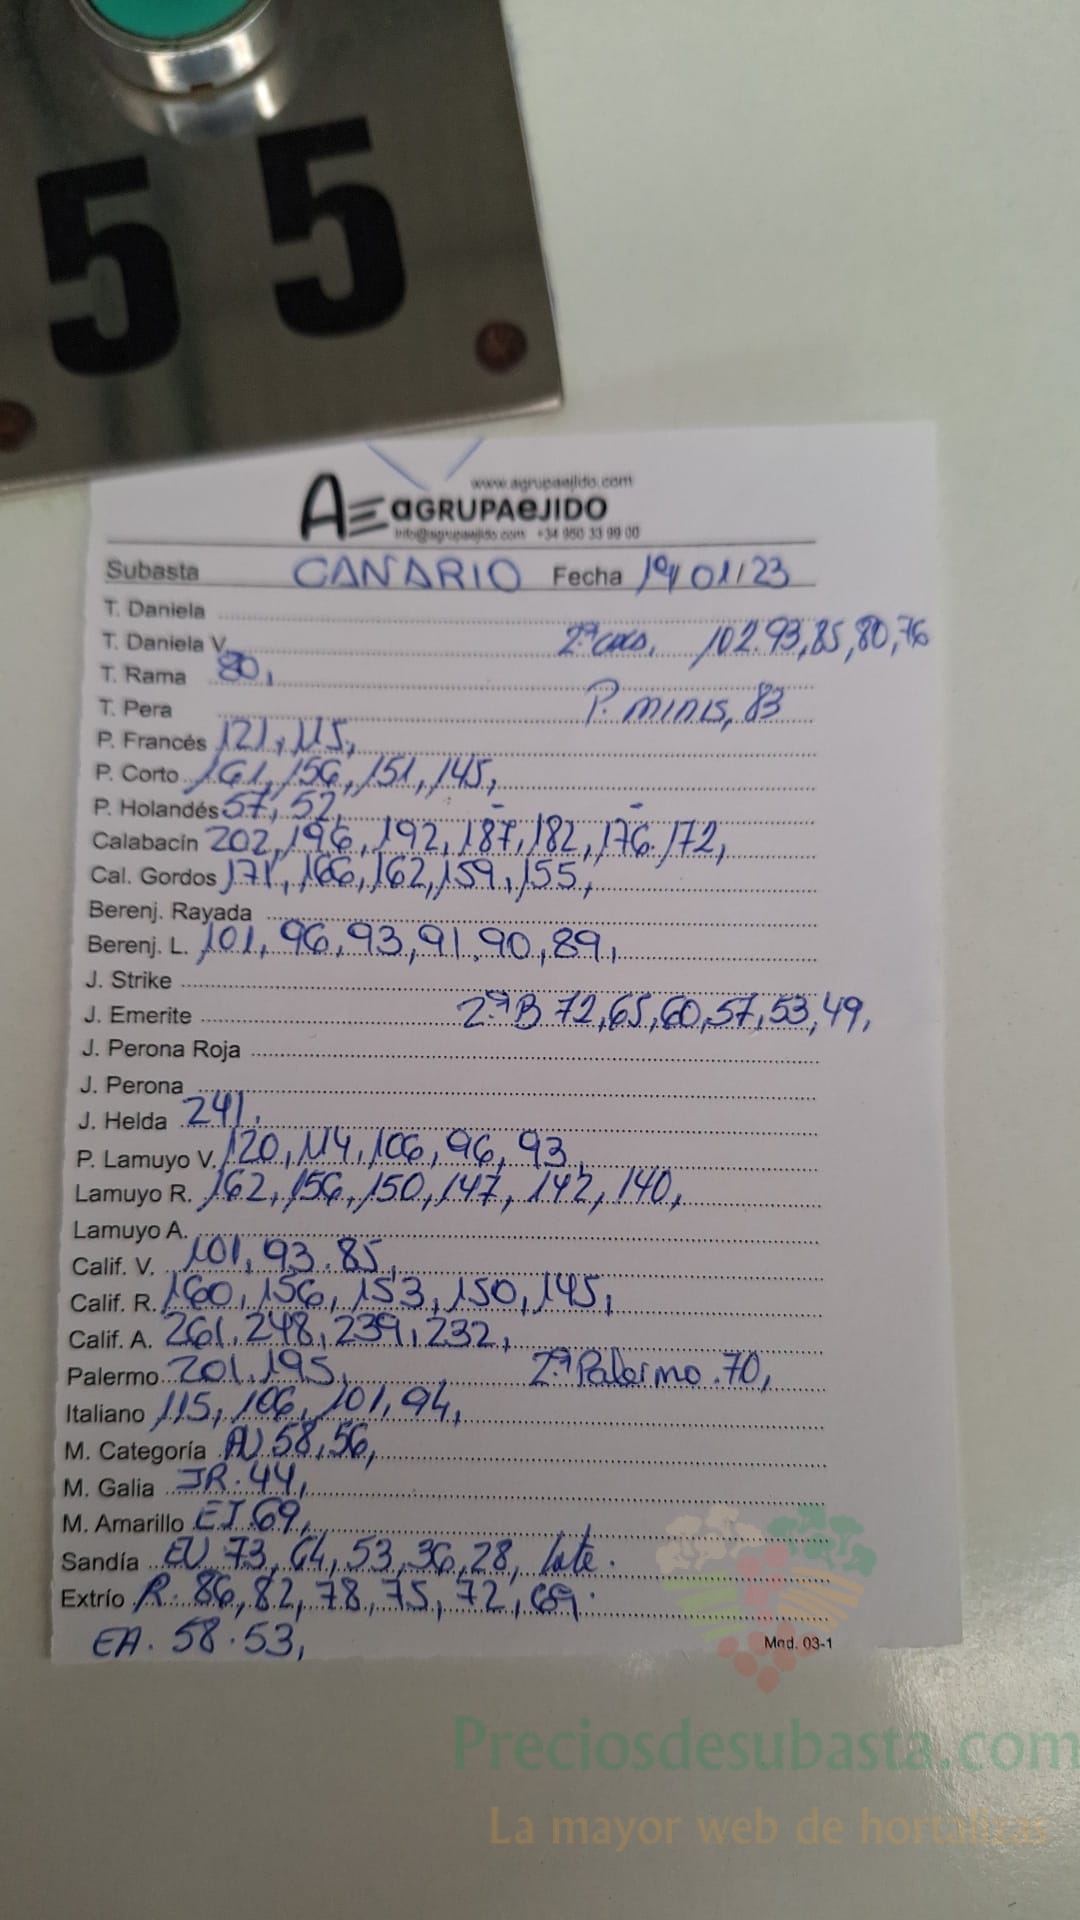 55
www.agrupaejido.com
AE aGRUPAeJIDO
info@agrupaejido.com +34 950 33 99 00
Subasta CANARIO Fecha 19/01/23
T. Daniela
T. Daniela V. 2ª 102.93,85,80,76
T. Rama 80,
T. Pera P. minis, 83
P. Francés 121, 115,
P. Corto 161, 156, 151, 145,
P. Holandés 57, 52,
Calabacín 202, 196, 192, 187, 182, 176. 172,
Cal. Gordos 171, 166, 162, 159, 155,
Berenj. Rayada
Berenj. L. 101, 96, 93, 91, 90, 89,
J. Strike
J. Emerite 2ª B 72, 65, 60, 57, 53, 49,
J. Perona Roja
J. Perona
J. Helda 241,
P. Lamuyo V. 120, 114, 106, 96, 93
Lamuyo R. 162, 156, 150, 147, 142, 140,
Lamuyo A.
Calif. V. 101, 93. 85,
Calif. R. 160, 156, 153, 150, 145,
Calif. A. 261, 248, 239, 232,
Palermo 201, 195, 2ª Palermo. 70,
Italiano 115, 106, 101, 94,
M. Categoría 58, 56,
M. Galia JR. 44,
M. Amarillo EJ 69,
Sandía EU 73, 64, 53, 36, 28, late.
Extrío R. 86, 82, 78, 75, 72, 69.
EA. 58. 53,
Mod. 03-1
Preciosdesubasta.com
La mayor web de hortalizas